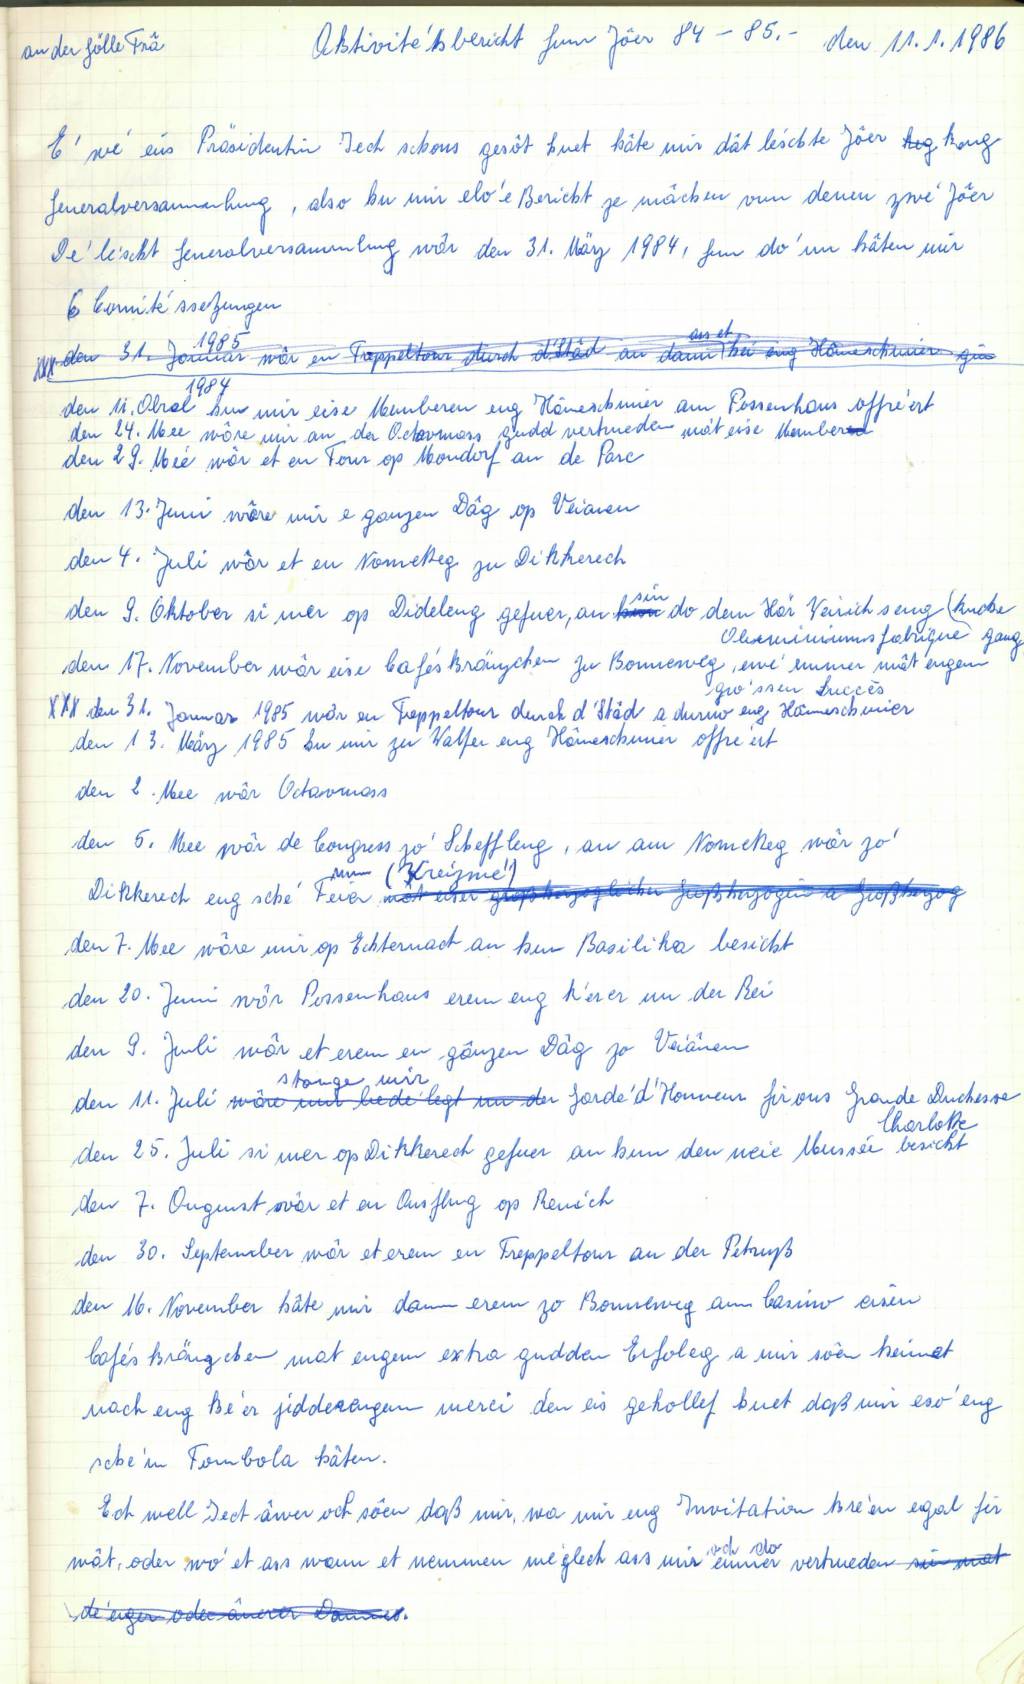 an der Gëlle Frâ
Aktivitéitsbericht fum Jôer 84 - 85.- den 11.1.1986
E' wé eis Präsidentin Iech schons gesôt huet hâte mir dât léschte Jôer keg keng
Generalversammlung, also hu mir elo' e Bericht ze mâchen vun denen zwé Jôer
De' léscht Generalversammlung wôr den 31. März 1984, fun do' un hâten mir
6 Comité ssetzungen
XXX den 31. Januar 1985 wôr en Treppeltour durch d'Stâd an dann ass et hei eng Hämeschmier gin
den 11. Abrel 1984 hu mir eise Memberen eng Hämeschmier am Pessenhaus offréert
den 24. Mee wôre mir an der Octavmass gudd vertrueden mât eise Memberen
den 29. Meé wôr et en Tour op Mondorf an de Parc
den 13. Juni wôre mir e ganzen Dâg op Veianen
den 4. Juli wôr et en Nomëtteg zu Dikkerech
den 9. Oktober si mer op Dideleng gefuer, an hun sin do dem Här Weirich seng (Kuche
Aluminiumsfabrique gang
den 17. November wôr eise Caféskränzchen zu Bonneweg, ewé ëmmer mât engem
gro'ssen Succès
XXX den 31. Januar 1985 wôr en Treppeltour durch d'Stâd a durno eng Hämeschmier
den 13. März 1985 hu mir zu Walfer eng Hämeschmier offréert
den 2. Mee wôr Octavmass
den 5. Mee wôr de Congress zo' Scheffleng, an am Nomëtteg wôr zo'
Dikkerech eng sché Feier vum (Kreizmé) mât eiser großherzoglicher Großherzogin a Großherzog
den 7. Mee wôre mir op Echternach an hun Basilika besicht
den 20. Juni wôr Pessenhaus erem eng k'er er un der Rei
den 9. Juli wôr et erem en gânzen Dâg zo Veiânen
den 11. Juli wôre mir bedé legt un der stonge mir Garde' d'Honneur fir ons Grande Duchesse
Charlotte
den 25. Juli si mer op Dikkerech gefuer an hun den neie Mussée besicht
den 7. August wôr et en Ausflug op Remich
den 30. September wôr et erem en Treppeltour an der Petruß
den 16. November hâte mir dann erem zo Bonneweg am Casino eisen
Caféskrängchen mat engem extra gudden Erfoleg a mir sôen heimat
nach eng ké'er jidderengem merci dén eis gehollef huet daß mir eso' eng
sché'n Tombola hâten.
Ech well Iech âwer och sôen daß mir, wa mir eng Invitation kré'en egal fir
wât, oder wo' et ass wann et nëmmen méglech ass mir och do ëmmer vertrueden sin mat
dé'enger oder ânerer Dammes.